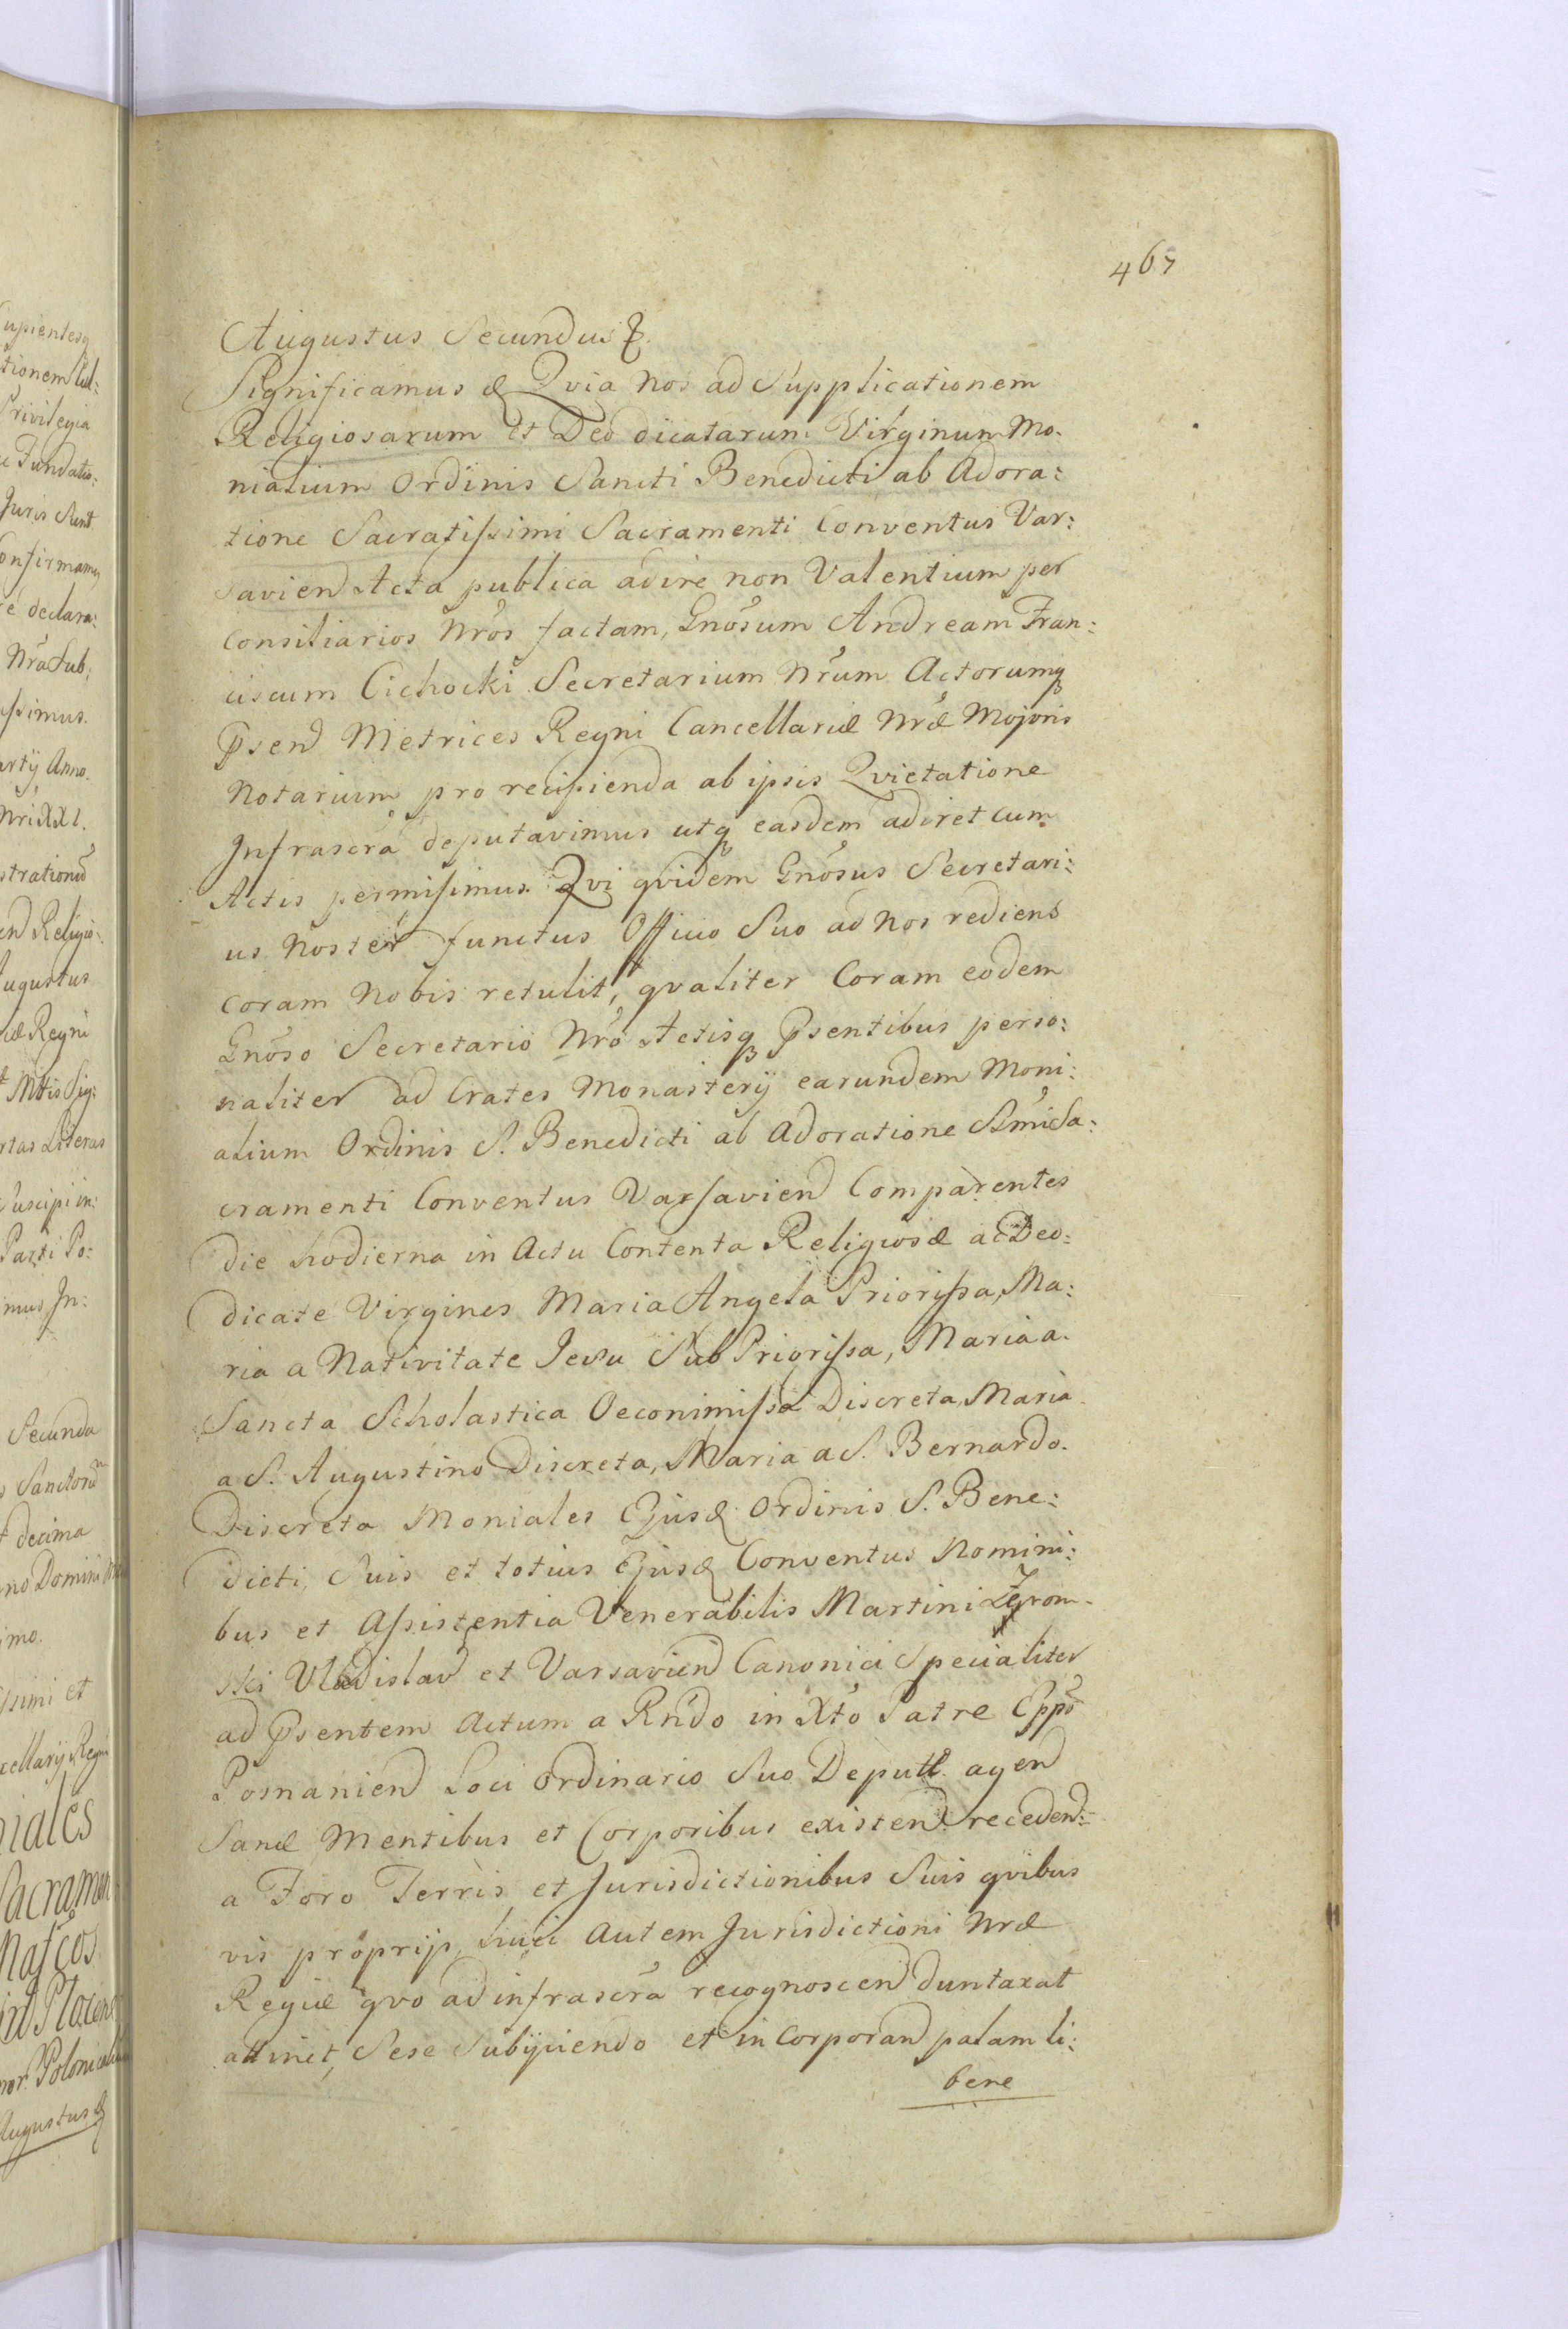 467
Augustus Secundus &.
Significamus & Qvia nos ad Supplicationem
Religiosarum et Deo dicatarum Virginum Mo-
nialium Ordinis Sancti Benedicti ab Adora:
tione Sacratissimi Sacramenti Conventus Var:
savien Acta publica adire non Valentium per
Consiliarios Nros factam, Gnosum Andream Fran:
ciscum Cichocki Secretarium Nrum Actorumq
Psen Metrices Regni Cancellariæ Nræ Majoris
Notarium pro recipienda ab ipsis Qvietatione
Infrascra deputavimus utq easdem adiret cum
Actis permisimus. Qvi qvidem Gnosus Secretari:
us Noster functus Officio Suo ad Nos rediens
coram Nobis retulit, qvaliter Coram eodem
Gnoso Secretario Nro Actisq Psentibus perso:
naliter ad Crates Monasterÿ earundem Moni:
alium Ordinis S. Benedicti ab Adoratione SSmi Sa:
cramenti Conventus Varsavien Comparentes
die hodierna in Actu Contenta Religiosæ ac Deo:
dicate Virgines Maria Angela Priorissa, Ma:
ria a Nativitate Jesu Sub Priorissa, Maria a.
Sancta Scholastica Oeconimissa Discreta, Maria
a S. Augustino Discreta, Maria a S. Bernardo.
Discreta Moniales Ejusd Ordinis S. Bene:
dicti, Suis et totius Ejusd Conventus Nomini:
bus et Assistentia Venerabilis Martini Zegrom-
ski Vladislav et Varsavien Canonici Specialiter
ad Psentem Actum a Rndo in Xto Patre Eppo
Posnanien Loci Ordinario Suo Deputt. agen
Sanæ Mentibus et Corporibus existen receden:
a Foro Terris et Jurisdictionibus Suis qvibus
vis proprijs, huic autem Jurisdictioni Nræ
Regiæ qvo ad infrascra recognoscen duntaxat
attinet, Sese Subijciendo et in Corporan palam li:
bere